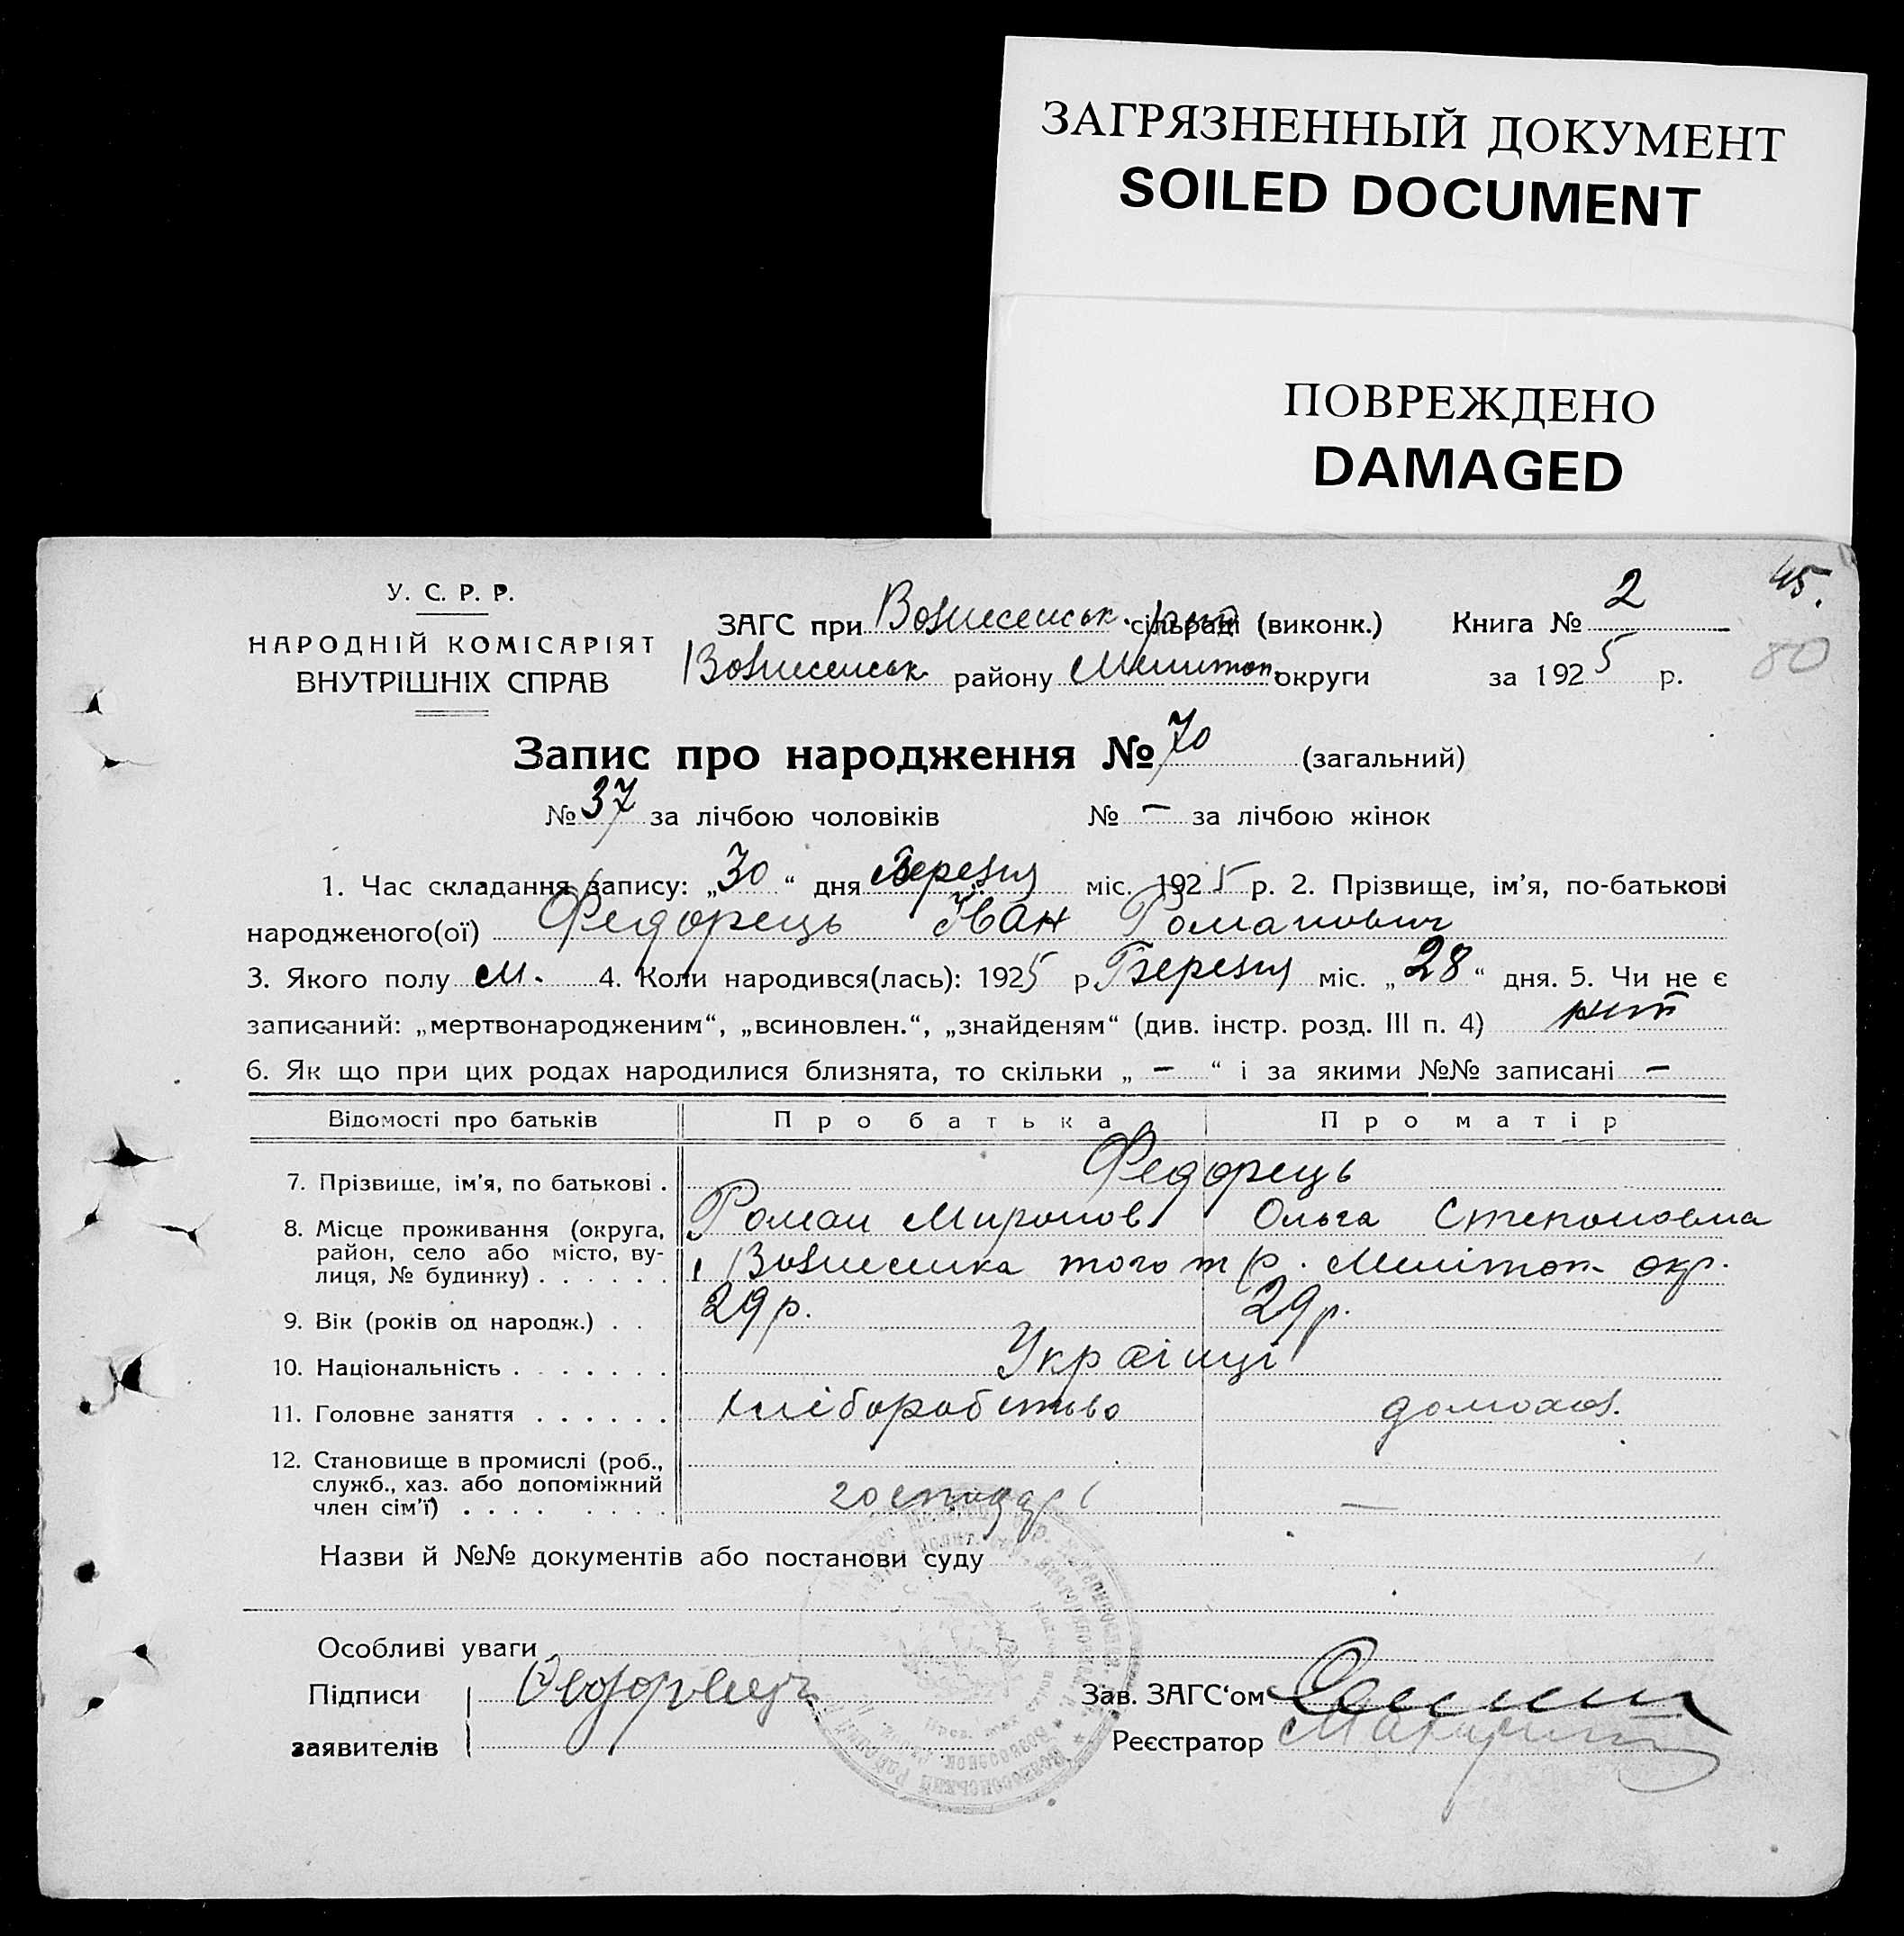 ЗАГРЯЗНЕННЫЙ ДОКУМЕНТ
SOILED DOCUMENT
ПОВРЕЖДЕНО
DAMAGED
45.
80
У. С. Р. Р.
НАРОДНІЙ КОМІСАРІЯТ
ВНУТРІШНІХ СПРАВ
ЗАГС при Вознесенськ. сільраді (виконк.) Книга № 2
Вознесенськ району Мелитоп. округи за 1925 р.
Запис про народження № 70 (загальний)
№ 37 за лічбою чоловіків № – за лічбою жінок
1. Час складання запису: „30“ дня Березня міс. 1925 р. 2. Прізвище, ім'я, по-батькові
народженого(ої) Федорець Іван Романович
3. Якого полу м. 4. Коли народився(лась): 1925 р. Березня міс. „28“ дня. 5. Чи не є
записаний: „мертвонародженим“, „всиновлен.“, „знайденям“ (див. інстр. розд. III п. 4) ні
6. Як що при цих родах народилися близнята, то скільки „ – “ і за якими №№ записані –
Відомості про батьків Про батька Про матір
7. Прізвище, ім'я, по батькові . Федорець
Роман Миронов Ольга Степоновма
8. Місце проживання (округа,
район, село або місто, ву-
лиця, № будинку) . . . . . . Вознесенка того ж р. Мелітоп. окр.
9. Вік (років од народж.) . . 29 р. 29 р.
10. Національність . . . . . . . Українці
11. Головне заняття . . . . . . хліборобство домохоз.
12. Становище в промислі (роб.,
служб., хаз. або допоміжний
член сім'ї) . . . . . . . . господарь —
Назви й №№ документів або постанови суду
Особливі уваги
Підписи Федорець Зав. ЗАГС‘ом
заявителів Реєстратор